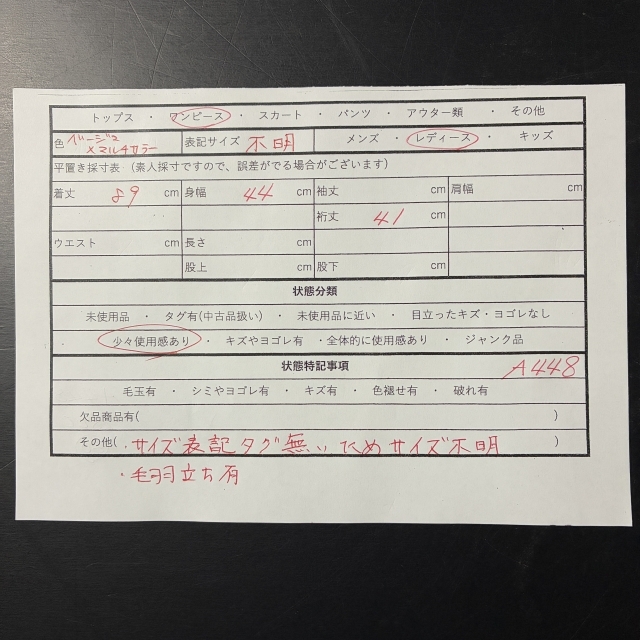 トップス ・ ワンピース ・ スカート ・ パンツ ・ アウター類 ・ その他
色 ベージュ×マルチカラー 表記サイズ 不明 メンズ ・ レディース ・ キッズ
平置き採寸表 (素人採寸ですので、誤差がでる場合がございます)
着丈 89 cm 身幅 44 cm 袖丈 cm 肩幅 cm
裄丈 41 cm
ウエスト cm 長さ cm
股上 cm 股下 cm
状態分類
未使用品 ・ タグ有(中古品扱い) ・ 未使用品に近い ・ 目立ったキズ・ヨゴレなし
少々使用感あり ・ キズやヨゴレ有 ・全体的に使用感あり ・ ジャンク品
状態特記事項 A448
毛玉有 ・ シミやヨゴレ有 ・ キズ有 ・ 色褪せ有 ・ 破れ有
欠品商品有( )
その他( ・サイズ表記タグ無いためサイズ不明 )
・毛羽立ち有